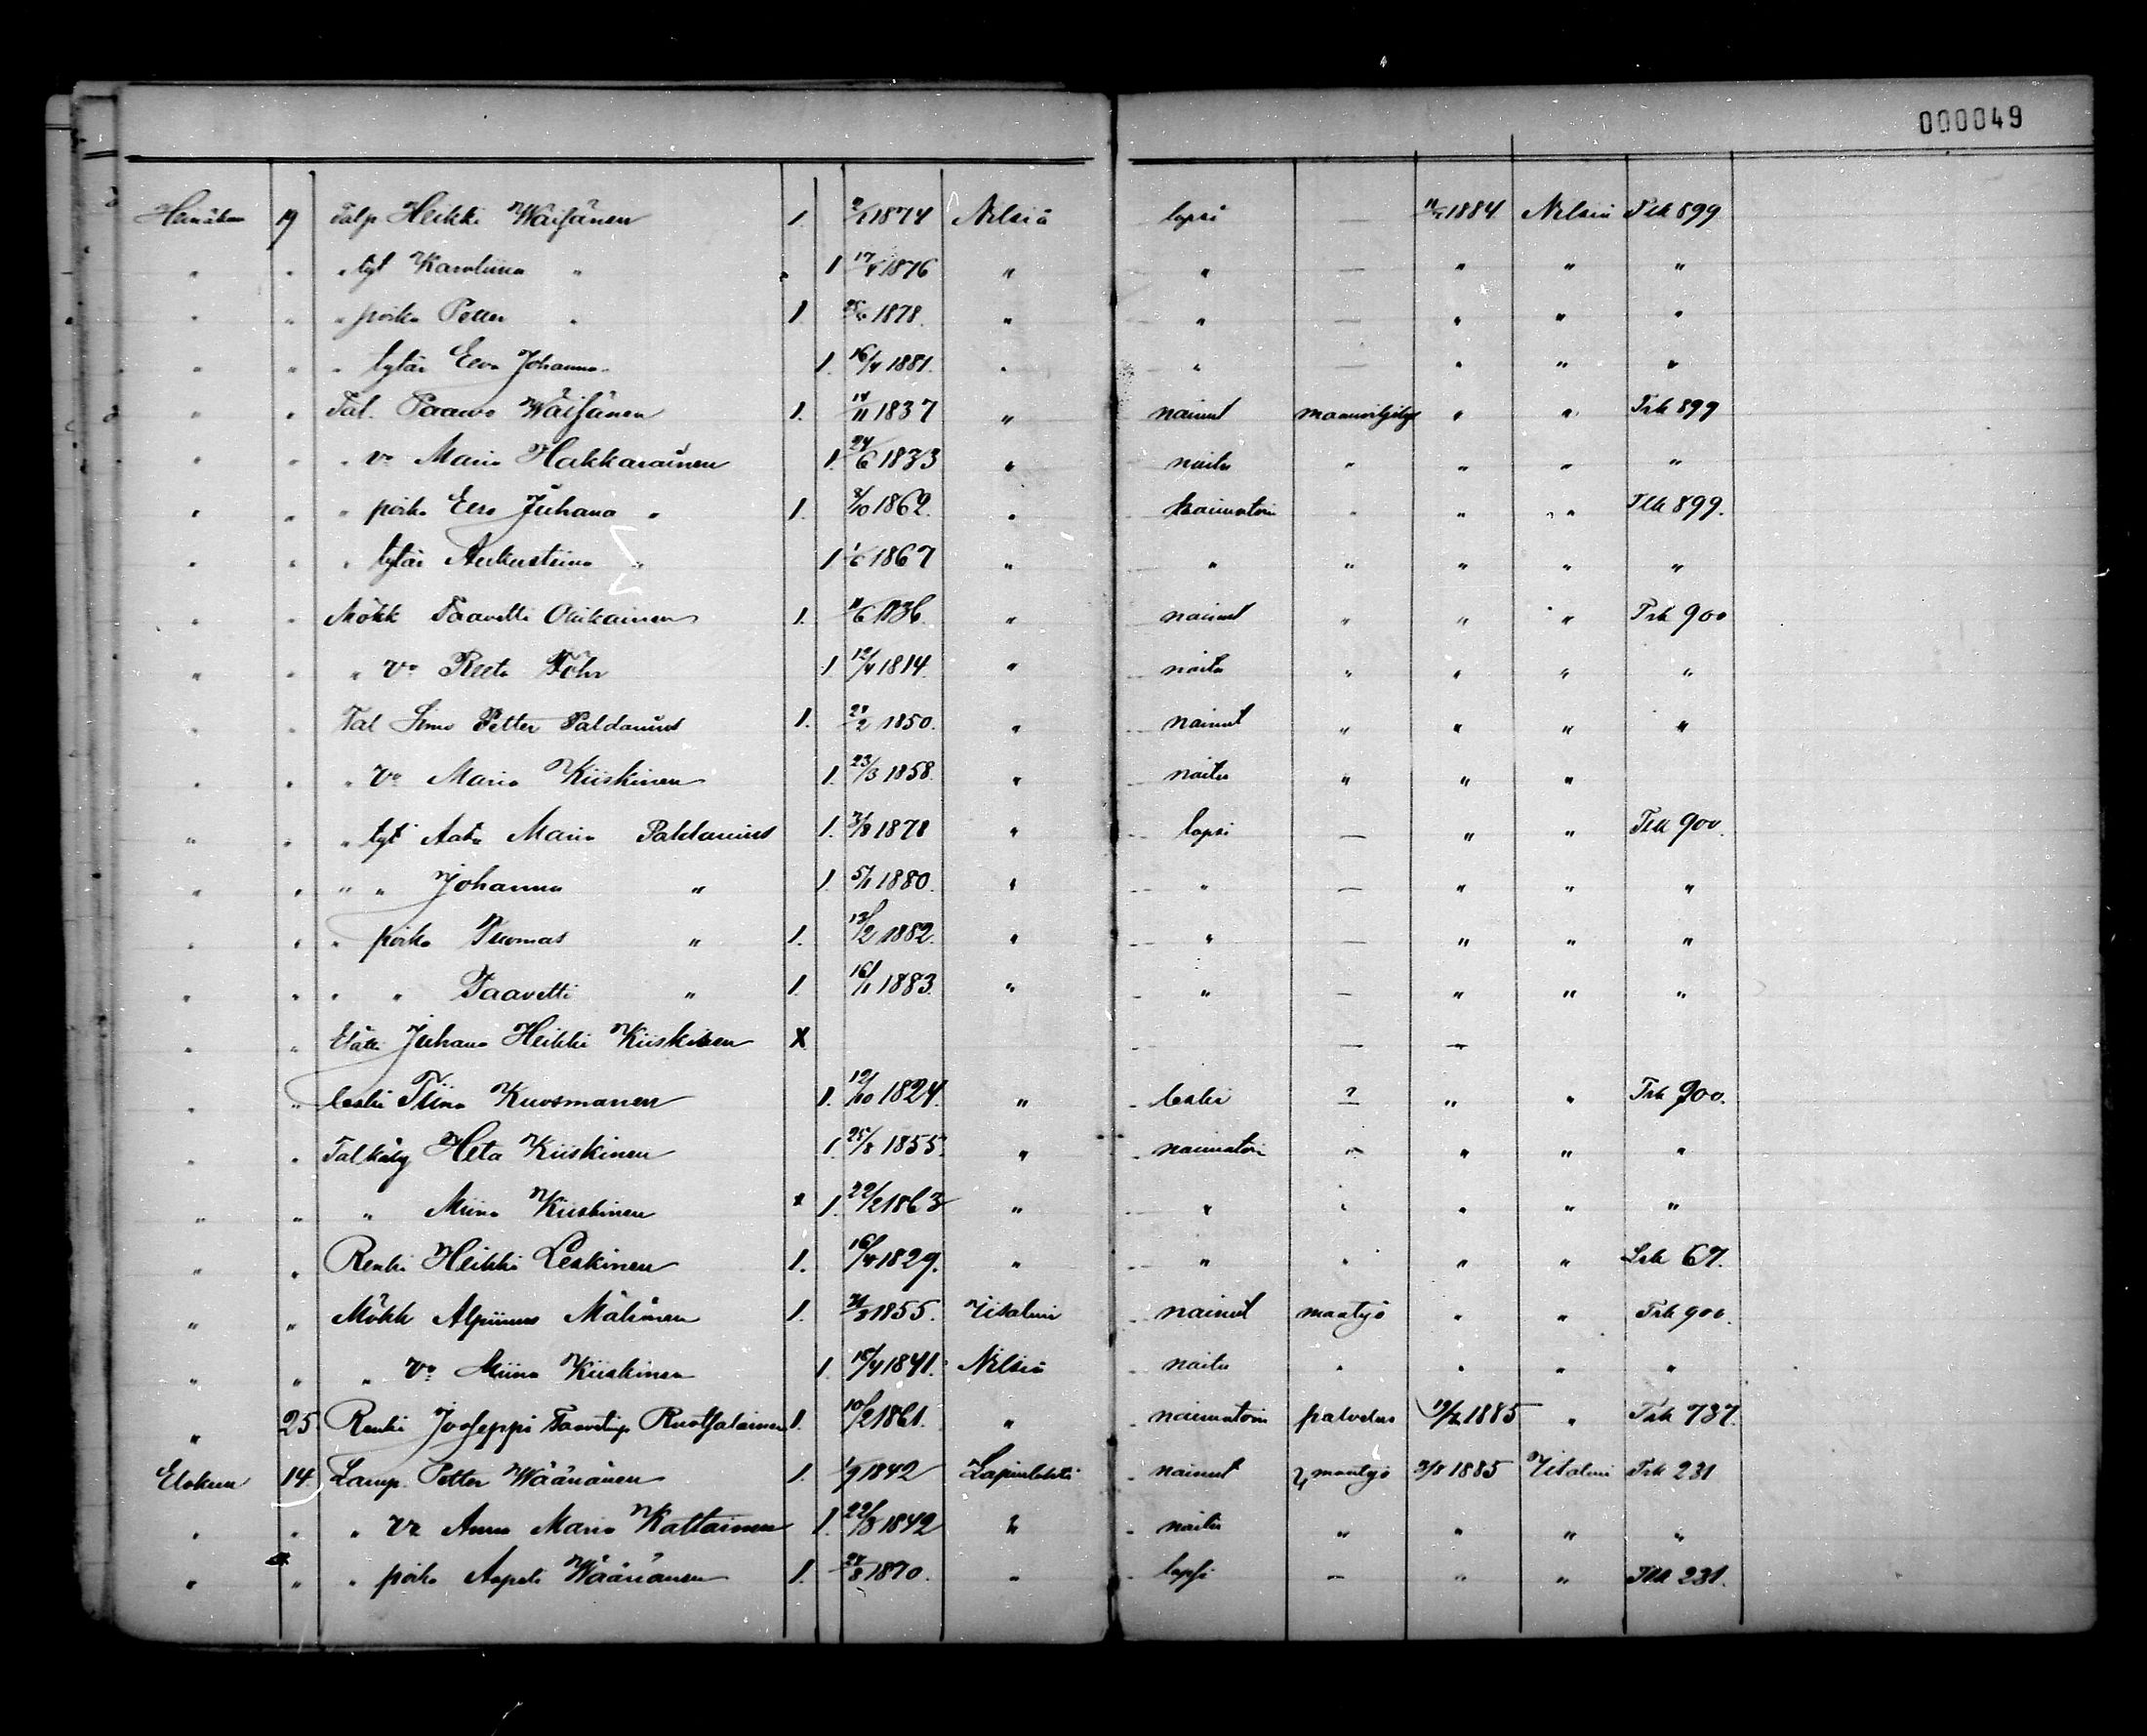 000049
Heinäkuu 19 Talp Heikki Wäisänen 1. 1874 Nilsiä lapsi — 1884 Nilsiä Tlk 899
" " " tyt Karoliina " 1 17/4 1876 " " — " " "
" " " poika Petter " 1. 1878. " " — " " "
" " " tytär Eeva Johanna 1. 16/4 1881. " " — " " "
" " Tal. Paavo Wäisänen 1. 14/11 1837 " nainut maanviljelys " " Trk 899
" " " vo Maria Hakkarainen 1. 24/6 1833 " naitu " " " "
" " " poika Eero Juhana " 1. 8/10 1862. " naimatoin " " " Tlk 899.
" " " tytär Aukustiina " 1 1/6 1867 " " " " " "
" " Mökk Taavetti Oikainen 1. 11/6 1836. " nainut " " " Trk 900
" " " vo Reeta Föhr 1 12/4 1814. " naitu " " " "
" " Tal Simo Petter Paldanius 1. 28/2 1850. " nainut " " " "
" " " Vo Maria Kiiskinen 1. 23/3 1858. " naitu " " "
" " " tyt Aata Maria Paldanius 1. 3/8 1878 " lapsi — " " Tlk 900.
" " " " Johanna " 1. 5/1 1880. " " — " " "
" " " poika Tuomas " 1. 13/2 1882. " " — " " "
" " " " Taavetti " 1. 16/1 1883. " " — " " "
" " Elätti Juhana Heikki Kiiskinen X — —
" " leski Tiina Kuosmanen 1. 12/10 1824. " leski ? " " Trk 900.
" " Tal käly Heta Kiiskinen 1. 25/8 1855. " naimatoin " " " "
" " " Miina Kiiskinen x 1. 22/2 1863 " " " " " "
" " Renki Heikki Leskinen 1. 16/4 1829. " " " " " Lrk 67.
" " Mökk Alpiinus Mälinen 1. 31/3 1855. Iisalmi nainut maatyö " " Trk 900.
" " " Vo Miina Kiiskinen 1. 15/4 1841. Nilsiä naitu " " " "
" 25 Renki Joosseppi Taavetinp Ruotsalainen 1. 10/2 1861. " naimatoin palvelus 1885 " Trk 737.
Elokuu 14. Lamp. Petter Wäänänen 1. 1/9 1842 Lapinlahti nainut maatyö 1885 Iisalmi Trk 231
" " " vo Anna Maria Kattainen 1. 22/3 1842 " naitu " " " "
" " " poika Aapeli Wäänänen 1. 28/8 1870. " lapsi — " " Tlk 231.